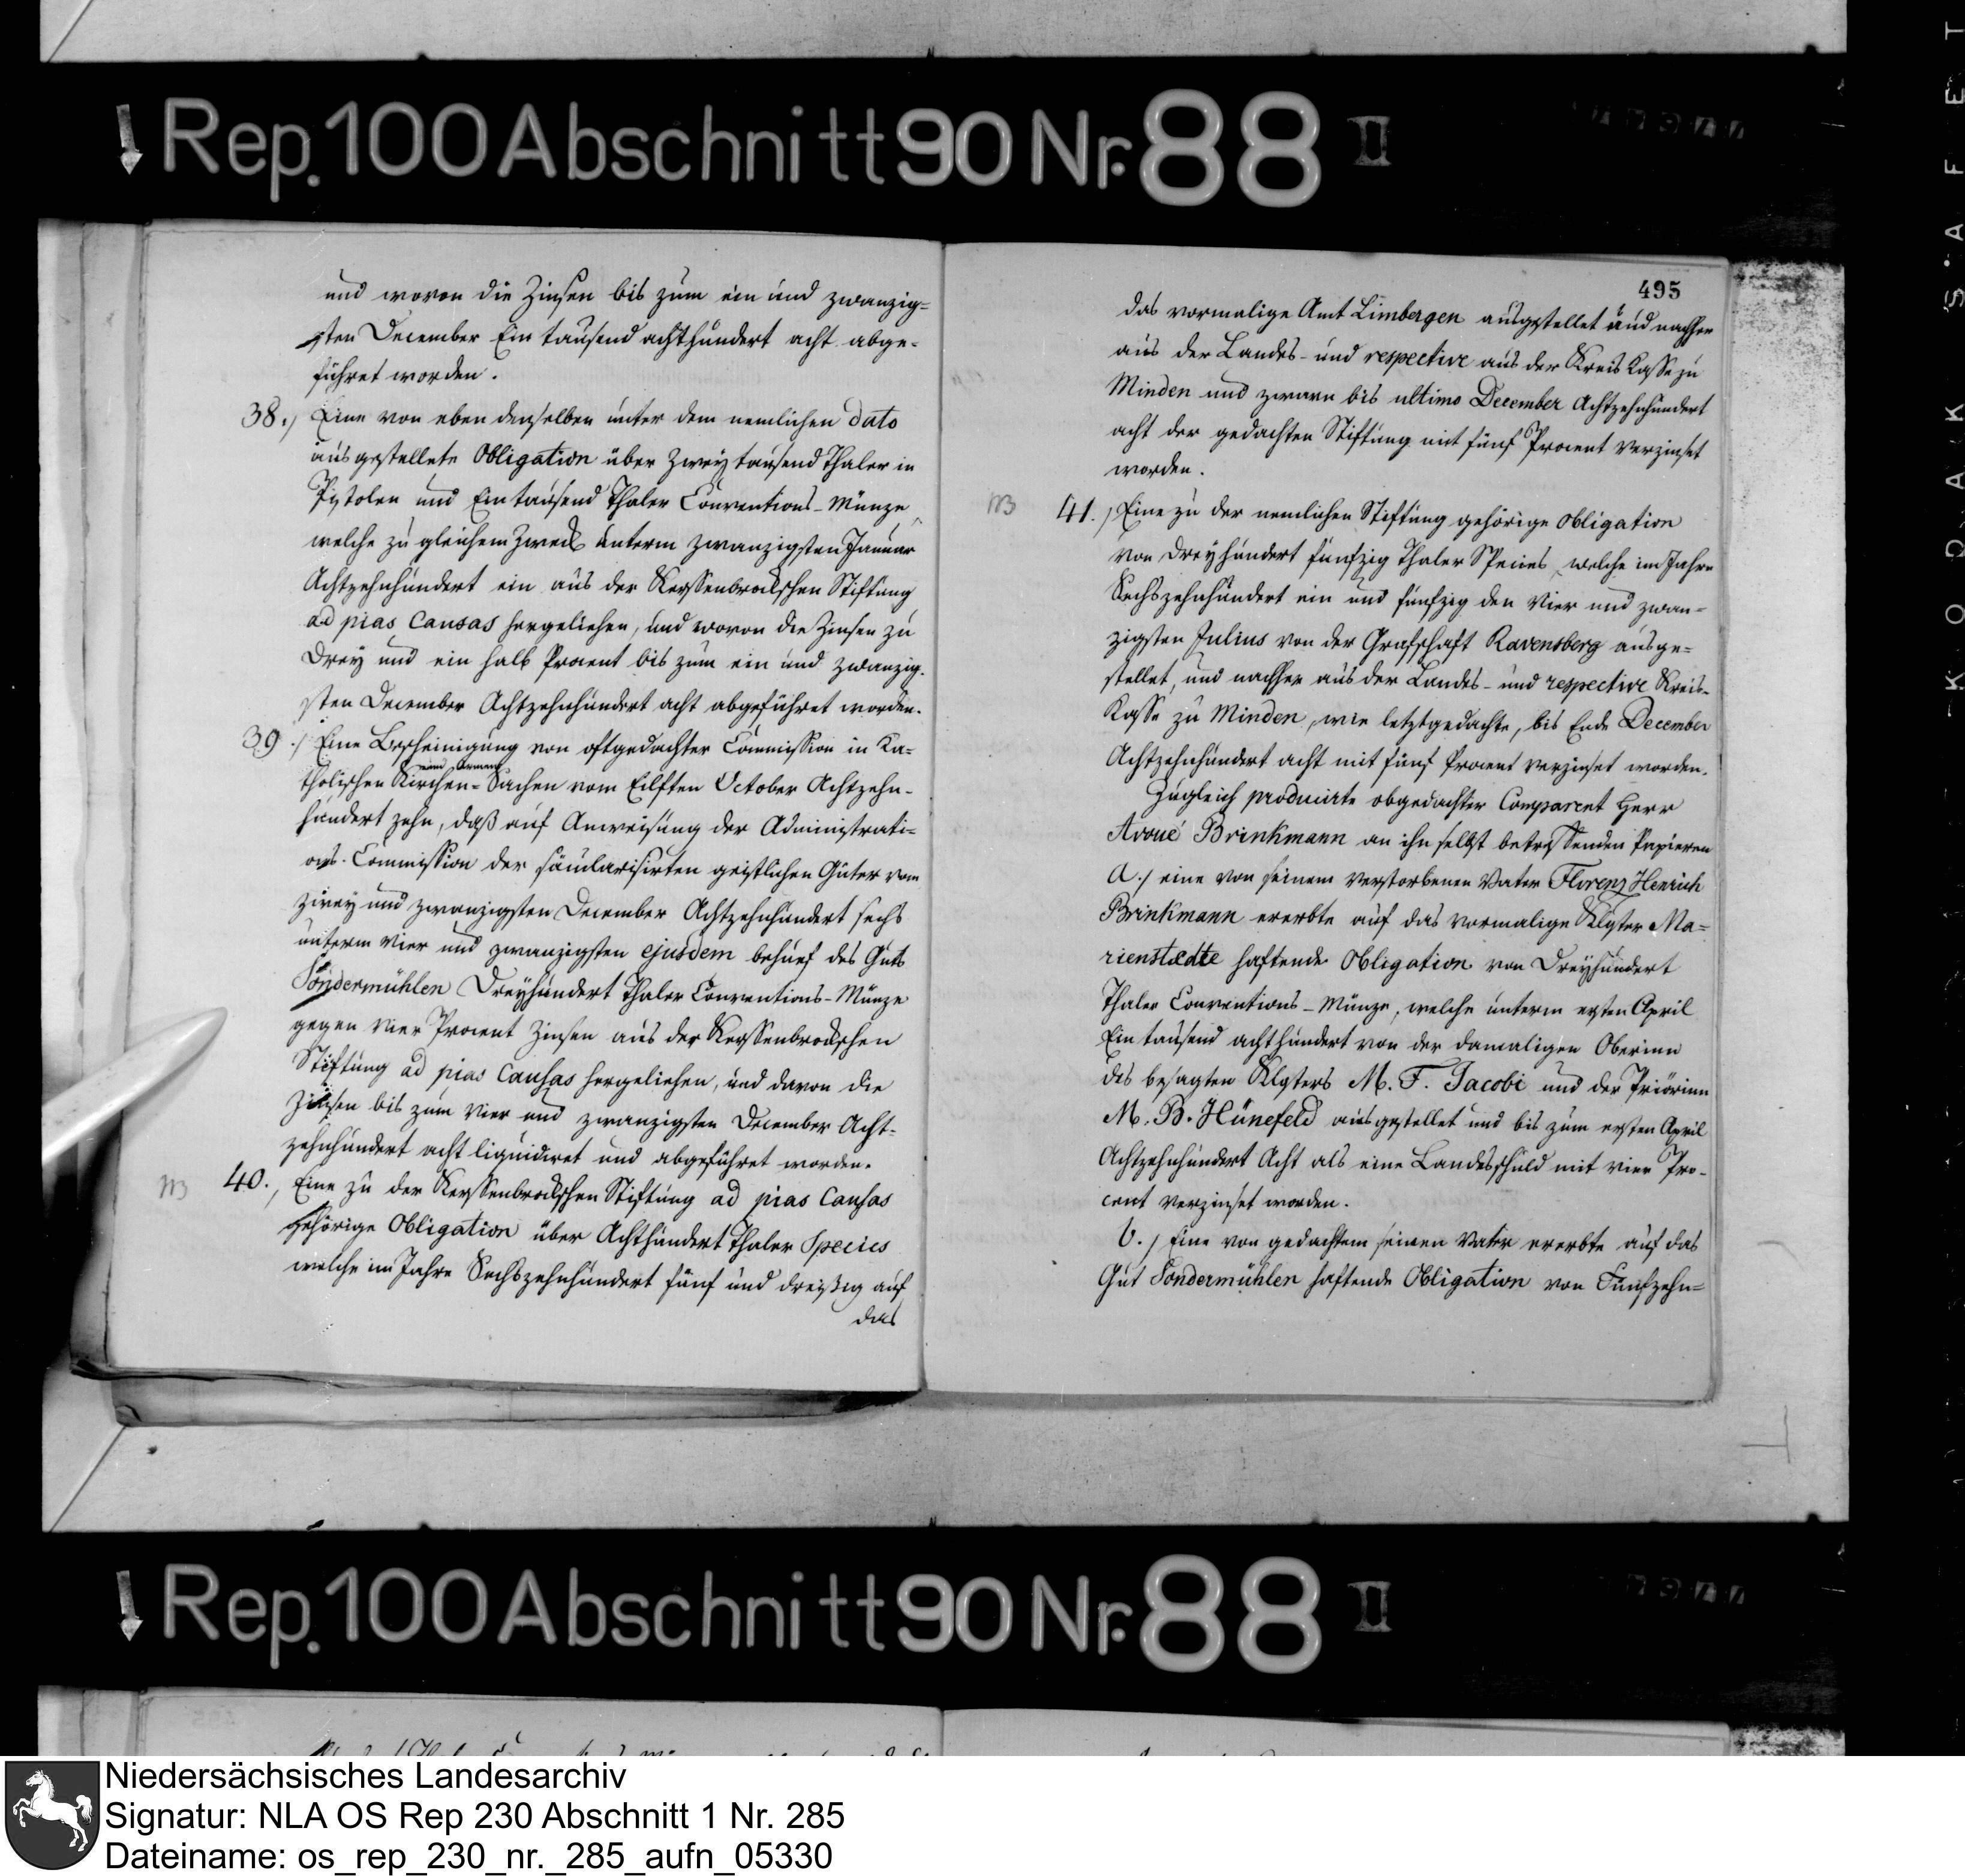 Rep. 100 Abschnitt 90 Nr. 88 II
und wovon die Zinsen bis zum ein und zwanzig-
sten December Ein tausend achthundert acht abge-
führet worden.
38./ Eine von eben denselben unter dem nemlichen dato
ausgestellete Obligation über Zwey tausend Thaler in
Pistolen und Ein tausend Thaler Conventions-Münze
welche zu gleichem Zweck unterm zwanzigsten Januar
Achtzehnhundert ein aus der Kerssenbrockschen Stiftung
ad pias Causas hergeliehen, und wovon die Zinsen zu
Drey und ein halb Procent bis zum ein und zwanzig-
sten December Achtzehnhundert acht abgeführet worden.
39./ Eine Bescheinigung von oftgedachter Commission in Ka-
und Armen
tholischen Kirchen-Sachen vom Eilften October Achtzehn-
hundert zehn, daß auf Anweisung der Administrati-
ons-Commission der säcularisirten geistlichen Güter vom
zwey und zwanzigsten December Achtzehnhundert sechs
unterm vier und zwanzigsten ejusdem behuef des Guts
Sondermühlen Dreyhundert Thaler Conventions-Münze
gegen vier Procent Zinsen aus der Kerssenbrockschen
Stiftung ad pias Causas hergeliehen, und davon die
Zinsen bis zum vier und zwanzigsten December Acht-
zehnhundert acht liquidiret und abgeführet worden.
40./ Eine zu der Kerssenbrockschen Stiftung ad pias Causas
gehörige Obligation über Achthundert Thaler Species
welche im Jahre Sechszehnhundert fünf und dreißig auf
das
495
das vormalige Amt Limbergen ausgestellet und nachher
aus der Landes- und respective aus der Kreis Kasse zu
Minden und zwarn bis ultimo December Achtzehnhundert
acht der gedachten Stiftung mit fünf Procent verzinset
worden.
41./ Eine zu der nemlichen Stiftung gehörige Obligation
von Dreyhundert fünfzig Thaler Species, welche im Jahre
Sechszehnhundert ein und fünfzig den vier und zwan-
zigsten Julius von der Grafschaft Ravensberg ausge-
stellet, und nachher aus der Landes- und respective Kreis-
Kasse zu Minden, wie letztgedachte, bis Ende December
Achtzehnhundert acht mit fünf Procent verzinset worden.
Zugleich producirte obgedachter Comparent Herr
Avoué Brinkmann an ihn selbst betreffenden Papieren
a./ eine von seinem verstorbenen Vater Florenz Henrich
Brinkmann ererbte auf das vormalige Kloster Ma-
rienstædte haftende Obligation von Dreyhundert
Thaler Conventions-Münze, welche unterm ersten April
Ein tausend achthundert von der damaligen Oberinn
des besagten Klosters M. F. Jacobi und der Priörinn
M. B. Hünefeld ausgestellet und bis zum ersten April
Achtzehnhundert Acht als eine Landesschuld mit vier Pro-
cent verzinset worden.
b./ Eine von gedachtem seinen Vater ererbte auf das
Gut Sondermühlen haftende Obligation von Fünfzehn-
Rep. 100 Abschnitt 90 Nr. 88 II
KODAK S.AFET
Niedersächsisches Landesarchiv
Signatur: NLA OS Rep 230 Abschnitt 1 Nr. 285
Dateiname: os_rep_230_nr._285_aufn_05330